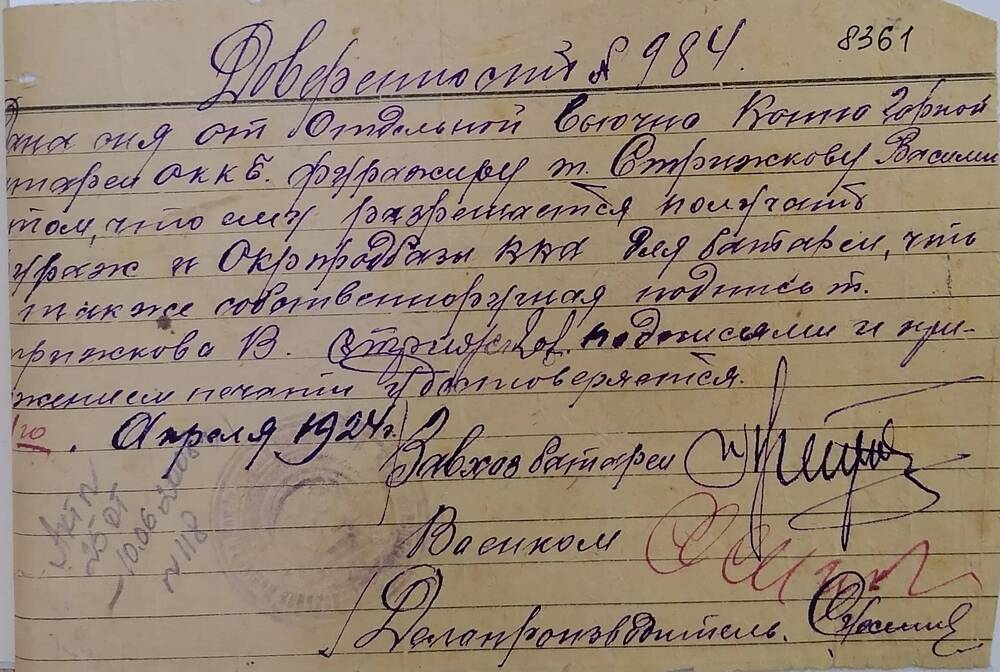 Доверенность № 984.
8361
дана сия от Отдельной Вьючно Конно Горной
тареи ОККБ. фуражиру т. Стрижкову Васили
том, что ему разрешается получать
ураж и Окрпродбазы ККА для батареи, что
также собственноручная подпись т.
трижкова В. Стрижков. подписями и при-
жением печати удостоверяется.
го. Апреля 1924 г.
Завхоз батареи
Военком
Делопроизводитель.
Акт №
25 от
10.06.2008
№ 118